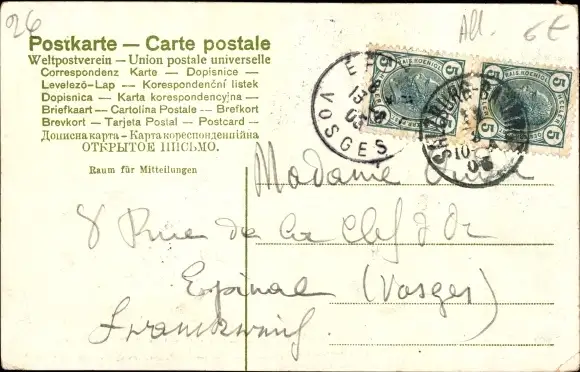 26
All. 6 E
Postkarte — Carte postale
Weltpostverein — Union postale universelle
Correspondenz Karte — Dopisnice —
Levelező-Lap — Korespondenční listek
Dopisnica — Karta korespondencyjna —
Briefkaart — Cartolina Postale — Brefkort
Brevkort — Tarjeta Postal — Postcard —
Дописна карта - Карта кореспонденційна
ОТКРЫТОЕ ПИСЬМО.
Raum für Mitteilungen
VOSGES
5 KAIS. KOENIGL. 5
5 5
5 KAIS. KOENIGL. 5
5 5
SALZBURG
Madame
8 Rue de la Clef d'Or
Epinal (Vosges)
Frankreich